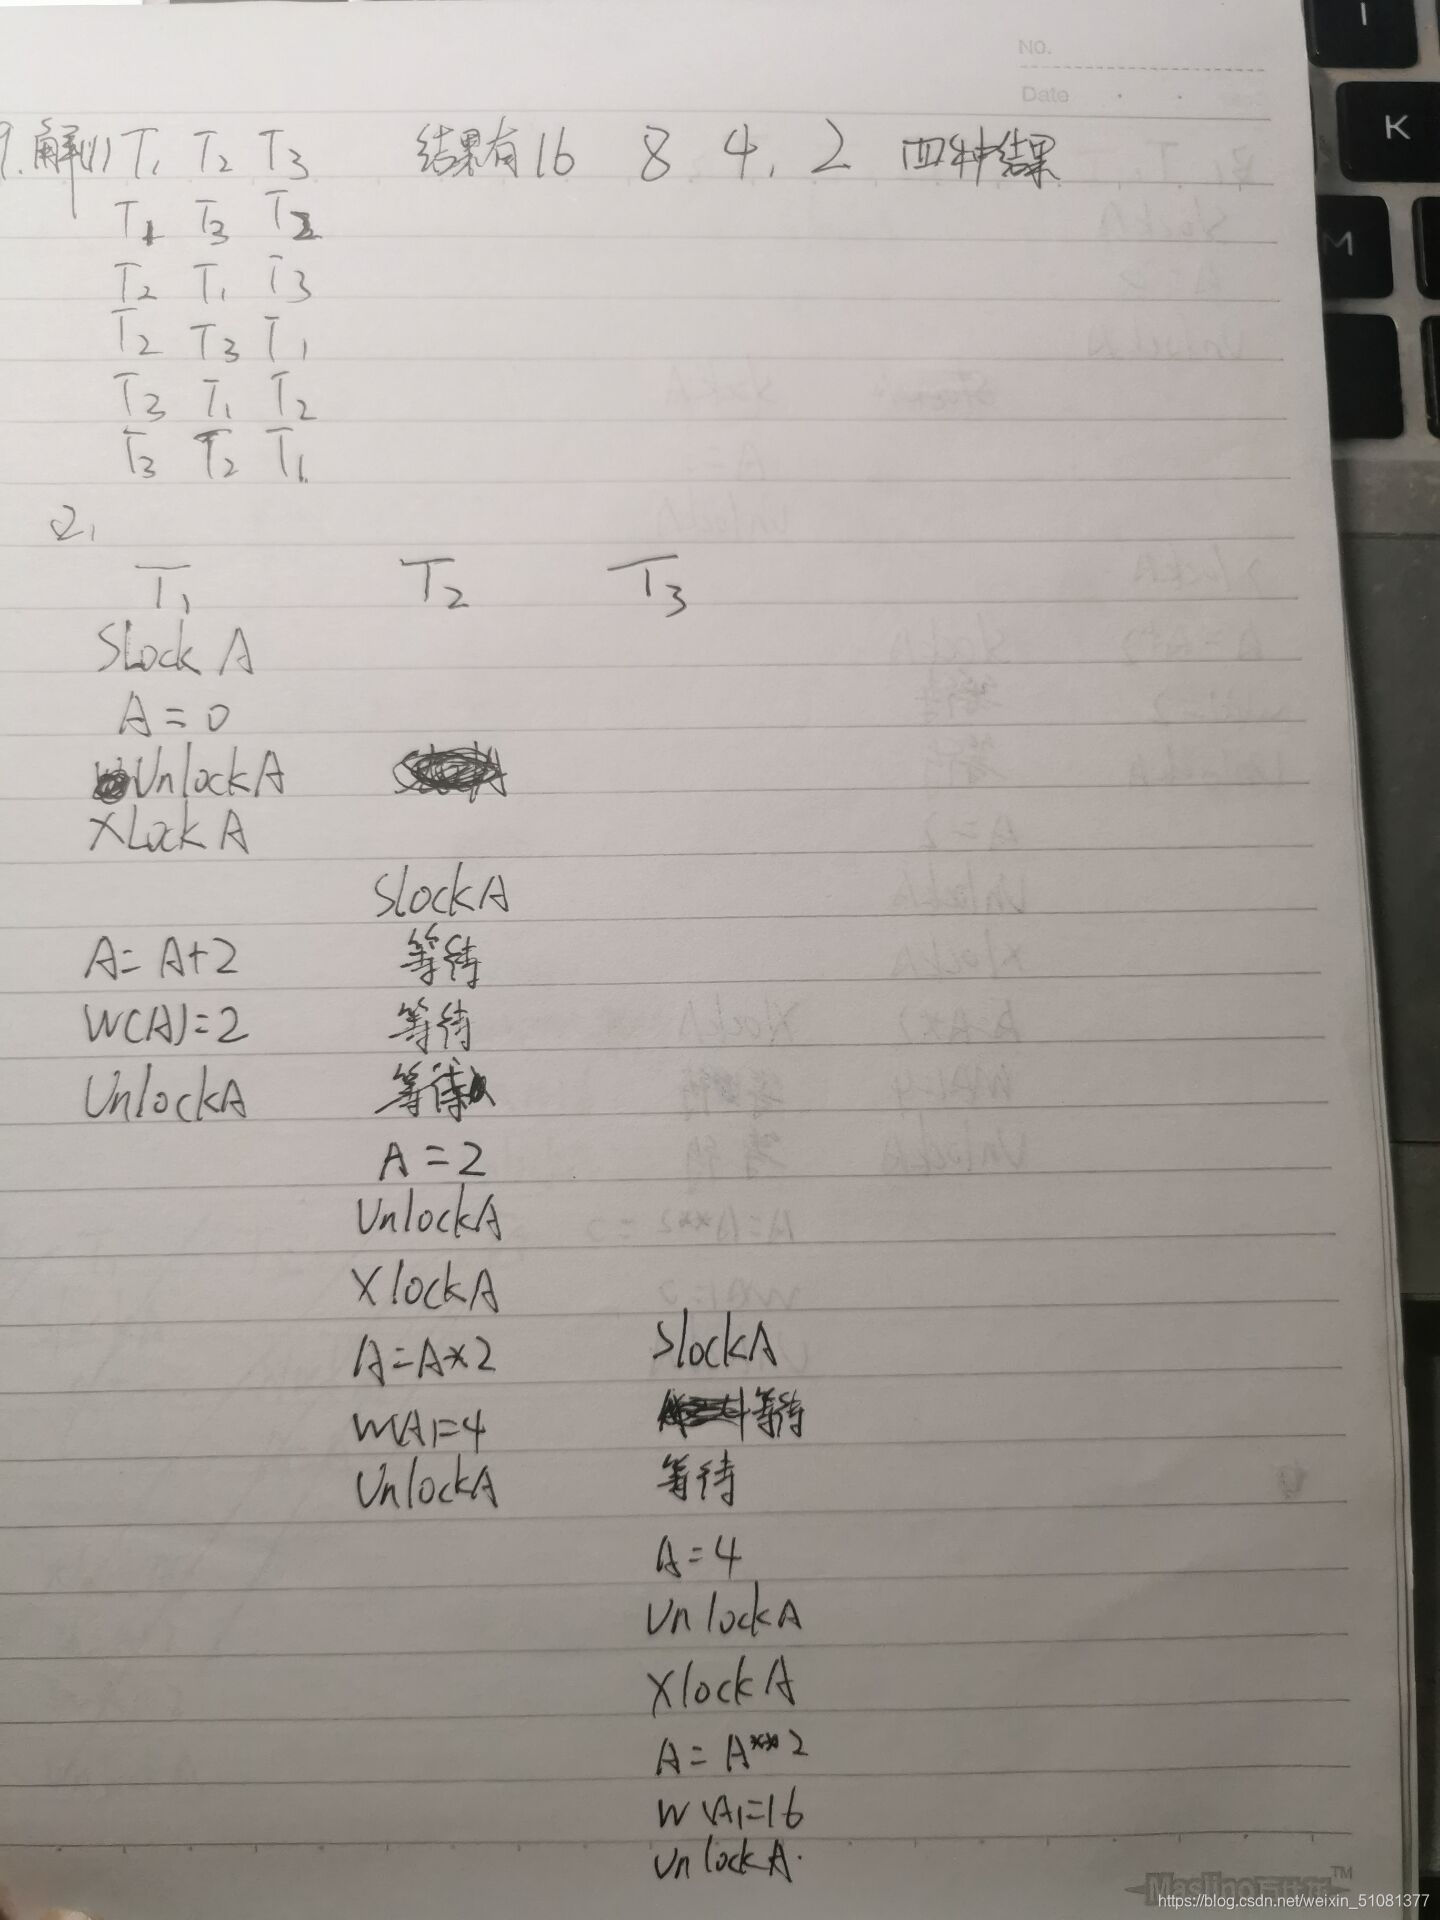 NO.
Date
9.解(1) T1 T2 T3 结果有16 8 4, 2 四种结果
T1 T3 T2
T2 T1 T3
T2 T3 T1
T3 T1 T2
T3 T2 T1
2,
T1 T2 T3
Slock A
A=0
UnlockA
XLock A
SlockA
A=A+2 等待
W(A)=2 等待
UnlockA 等待
A=2
UnlockA
XlockA
A=A×2 SlockA
W(A)=4 等待
UnlockA 等待
A=4
UnlockA
XlockA
A=A**2
W(A)=16
UnlockA.
https://blog.csdn.net/weixin_51081377
I
K
M